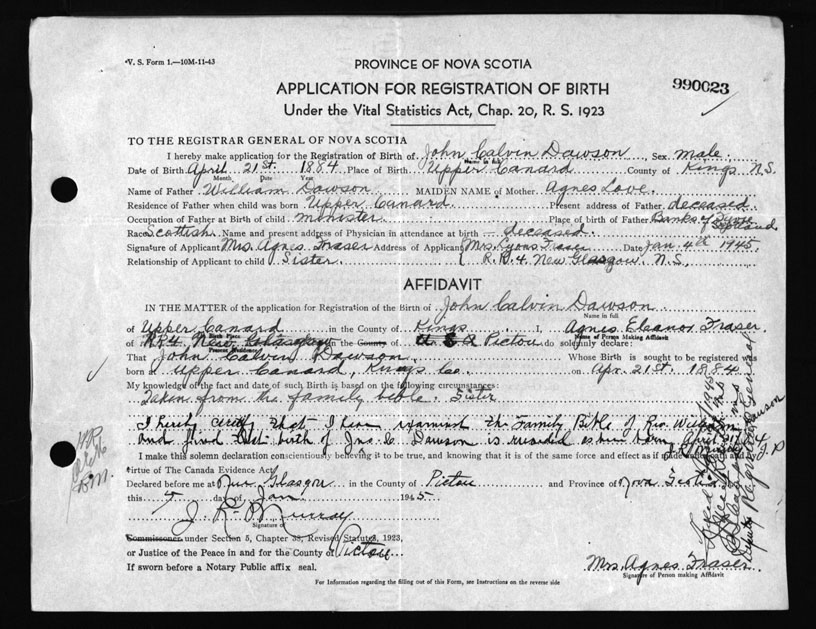 V. S. Form 1.—10M-11-43
PROVINCE OF NOVA SCOTIA
APPLICATION FOR REGISTRATION OF BIRTH
990023
Under the Vital Statistics Act, Chap. 20, R. S. 1923
TO THE REGISTRAR GENERAL OF NOVA SCOTIA
I hereby make application for the Registration of Birth of John Calvin Dawson Sex male
Name in full
Date of Birth April 21st 1884 Place of Birth Upper Canard County of Kings N.S.
Month Date Year
Name of Father William Dawson MAIDEN NAME of Mother Agnes Love
Residence of Father when child was born Upper Canard Present address of Father deceased
Occupation of Father at Birth of child minister Place of birth of Father Banks of Scotland
Race Scottish Name and present address of Physician in attendance at birth — deceased
Signature of Applicant Mrs. Agnes Fraser Address of Applicant Mrs. Lyons Fraser Date Jan 4th 1945
Relationship of Applicant to child Sister R.R.4. New Glasgow N.S.
AFFIDAVIT
IN THE MATTER of the application for Registration of the Birth of John Calvin Dawson
Name in full
of Upper Canard in the County of Kings I, Agnes Eleanor Fraser
Birth Place Name of Person Making Affidavit
of RR4 New Glasgow in the County of Pictou do solemnly declare:
Present Residence
That John Calvin Dawson Whose Birth is sought to be registered was
born at Upper Canard, Kings Co. on Apr. 21st 1884
My knowledge of the fact and date of such Birth is based on the following circumstances:
Taken from the family bible. Sister
I hereby certify that I have examined the Family Bible of Rev. William
and find that birth of Jno. C. Dawson is recorded as born April
I make this solemn declaration conscientiously believing it to be true, and knowing that it is of the same force and effect as if made oath and J.P
virtue of The Canada Evidence Act
Declared before me at New Glasgow in the County of Pictou and Province of Nova Scotia
this 4 day of Jan 1945
J. R. Murray
Signature of
Commissioner under Section 5, Chapter 38, Revised Statutes, 1923,
or Justice of the Peace in and for the County of Pictou
If sworn before a Notary Public affix seal.
Mrs. Agnes Fraser
Signature of Person making Affidavit
For Information regarding the filling out of this Form, see Instructions on the reverse side
Deputy Registrar General